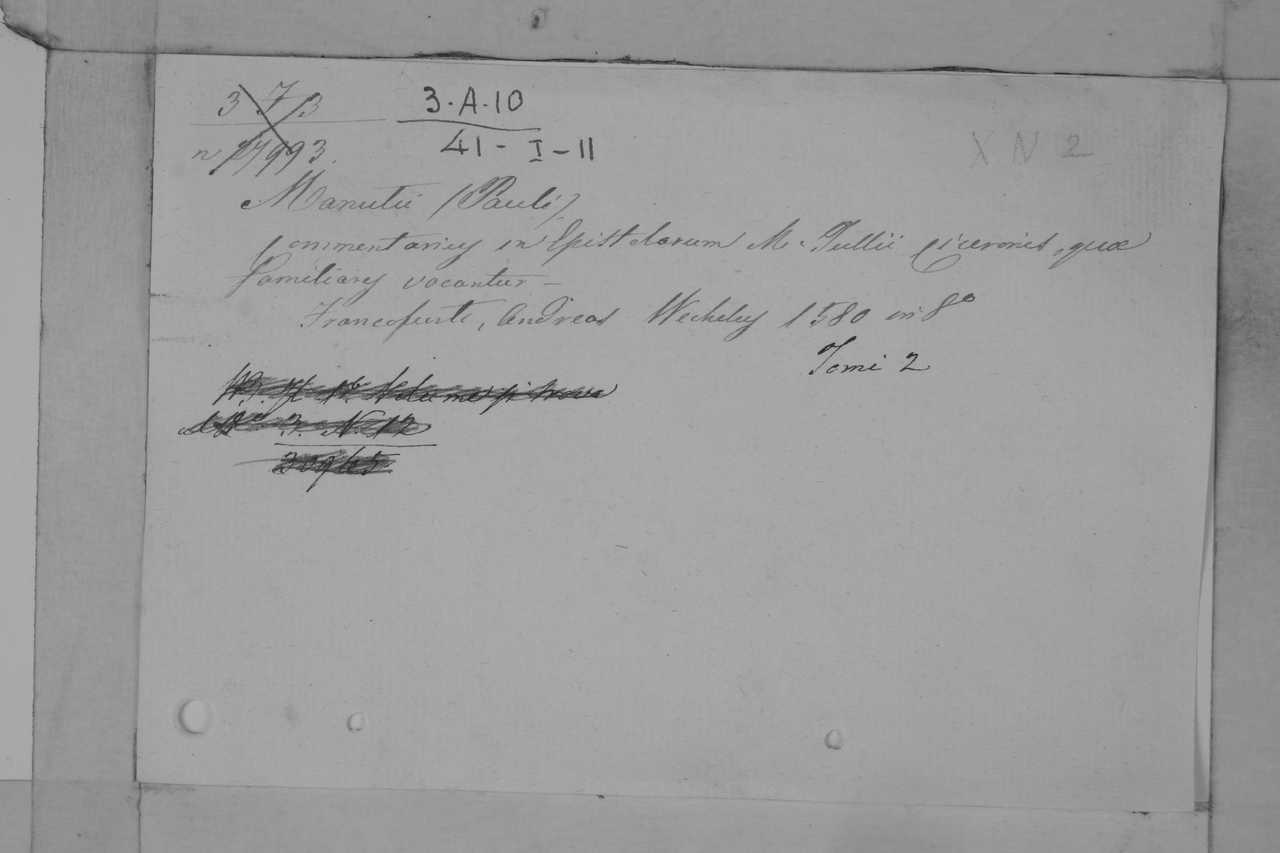 3·A·10
41-I-11
X N 2
Manutii (Pauli)
Commentarius in Epistolarum M. Tullii Ciceronis, quæ
familiares vocantur -
Francofurti, Andreas Wechelus 1580 in 8º
Tomi 2
3. N. 12